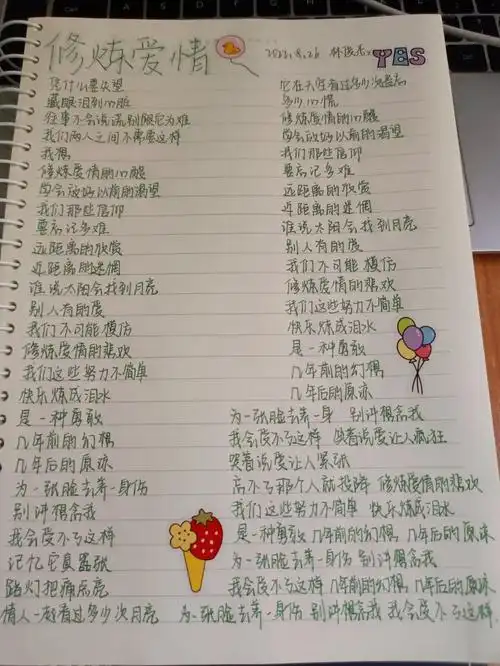 修炼爱情
2022.8.26 林俊杰
YES
凭什么要失望
藏眼泪到心脏
往事不会说谎别跟它为难
我们两人之间不需要这样
我想
修炼爱情的心酸
学会放好以前的渴望
我们那些信仰
要忘记多难
远距离的欣赏
近距离的迷惘
谁说太阳会找到月亮
别人有的爱
我们不可能模仿
修炼爱情的悲欢
我们这些努力不简单
快乐炼成泪水
是一种勇敢
几年前的幻想
几年后的原谅
为一张脸去养一身伤
别讲想念我
我会受不了这样
记忆它真嚣张
路灯把痛点亮
情人一起看过多少次月亮
它在天空看过多少次遗忘
多少心慌
修炼爱情的心酸
学会放好以前的渴望
我们那些信仰
要忘记多难
远距离的欣赏
近距离的迷惘
谁说太阳会找到月亮
别人有的爱
我们不可能模仿
修炼爱情的悲欢
我们这些努力不简单
快乐炼成泪水
是一种勇敢
几年前的幻想
几年后的原谅
为一张脸去养一身 别讲想念我
我会受不了这样 笑着说爱让人疯狂
哭着说爱让人紧张
忘不了那个人就投降 修炼爱情的悲欢
我们这些努力不简单 快乐炼成泪水
是一种勇敢 几年前的幻想 几年后的原谅
为一张脸去养一身伤 别讲想念我
我会受不了这样 几年前的幻想 几年后的原谅
为一张脸去养一身伤 别讲想念我 我会受不了这样